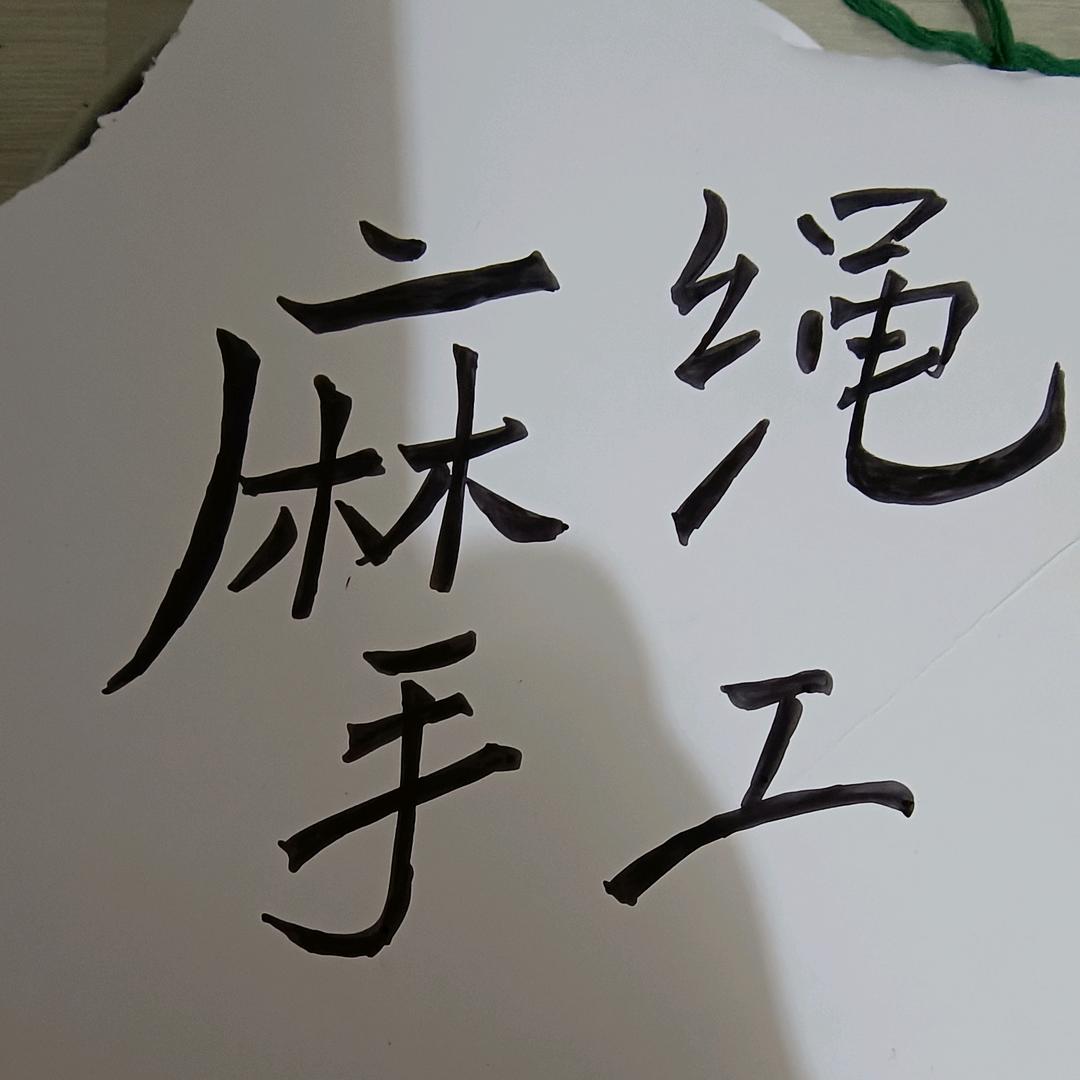 麻绳
手工